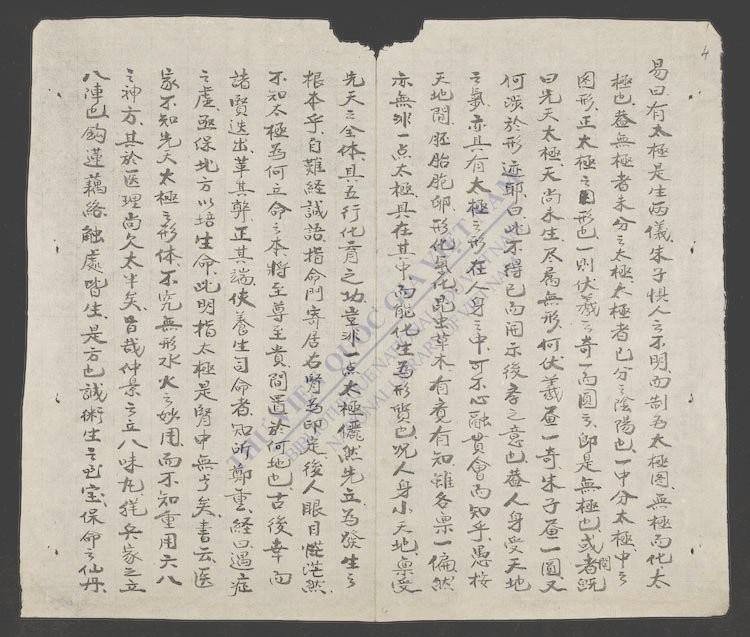 4
易曰有太極是生両儀朱子惧人之不明而制為太極图無極而化太
極也盖無極者未分之太極太極者已分之陰陽也一中分太極中之
图形正太極之图形也一則伏羲之奇一而圓之即是無極也或者問既
曰先天太極天尚未生尽属無形何伏羲畫一奇朱子畫一圓又
何涉於形迹耶曰此不得已而開示後孝之意也盖人身受天地
之氣亦具有太極之形在人身之中可不心融貫會而知乎愚桉
天地間胚胎胞卵形化氣化昆虫草木有竟有知雖各禀一偏然
亦無非一点太極具在其中而能化生為形質也况人身小天地禀受
先天之全体具五行化育之功豈非一点太極儼然先立為發生之
根本乎自難経誠語指命門寄居右腎為印定後人眼目茫茫然
不知太極為何立命之本将至尊至貴間置於何地也古後幸而
諸賢迭出革其弊正其端使養生司命者知所鄭重経曰過症
之虚亟保北方以培生命此明指太極是腎中無亏矣書云医
家不知先天太極之形体不究無形水火之妙用而不知重用六八
之神方其於医理尚欠太半矣旨哉仲景之立八味丸猶兵家之立
八陣也鈎蓮藕絡触處皆生是方也誠術生之至宝保命之仙丹
THƯ VIỆN QUỐC GIA VIỆT NAM
NATIONAL LIBRARY OF VIETNAM